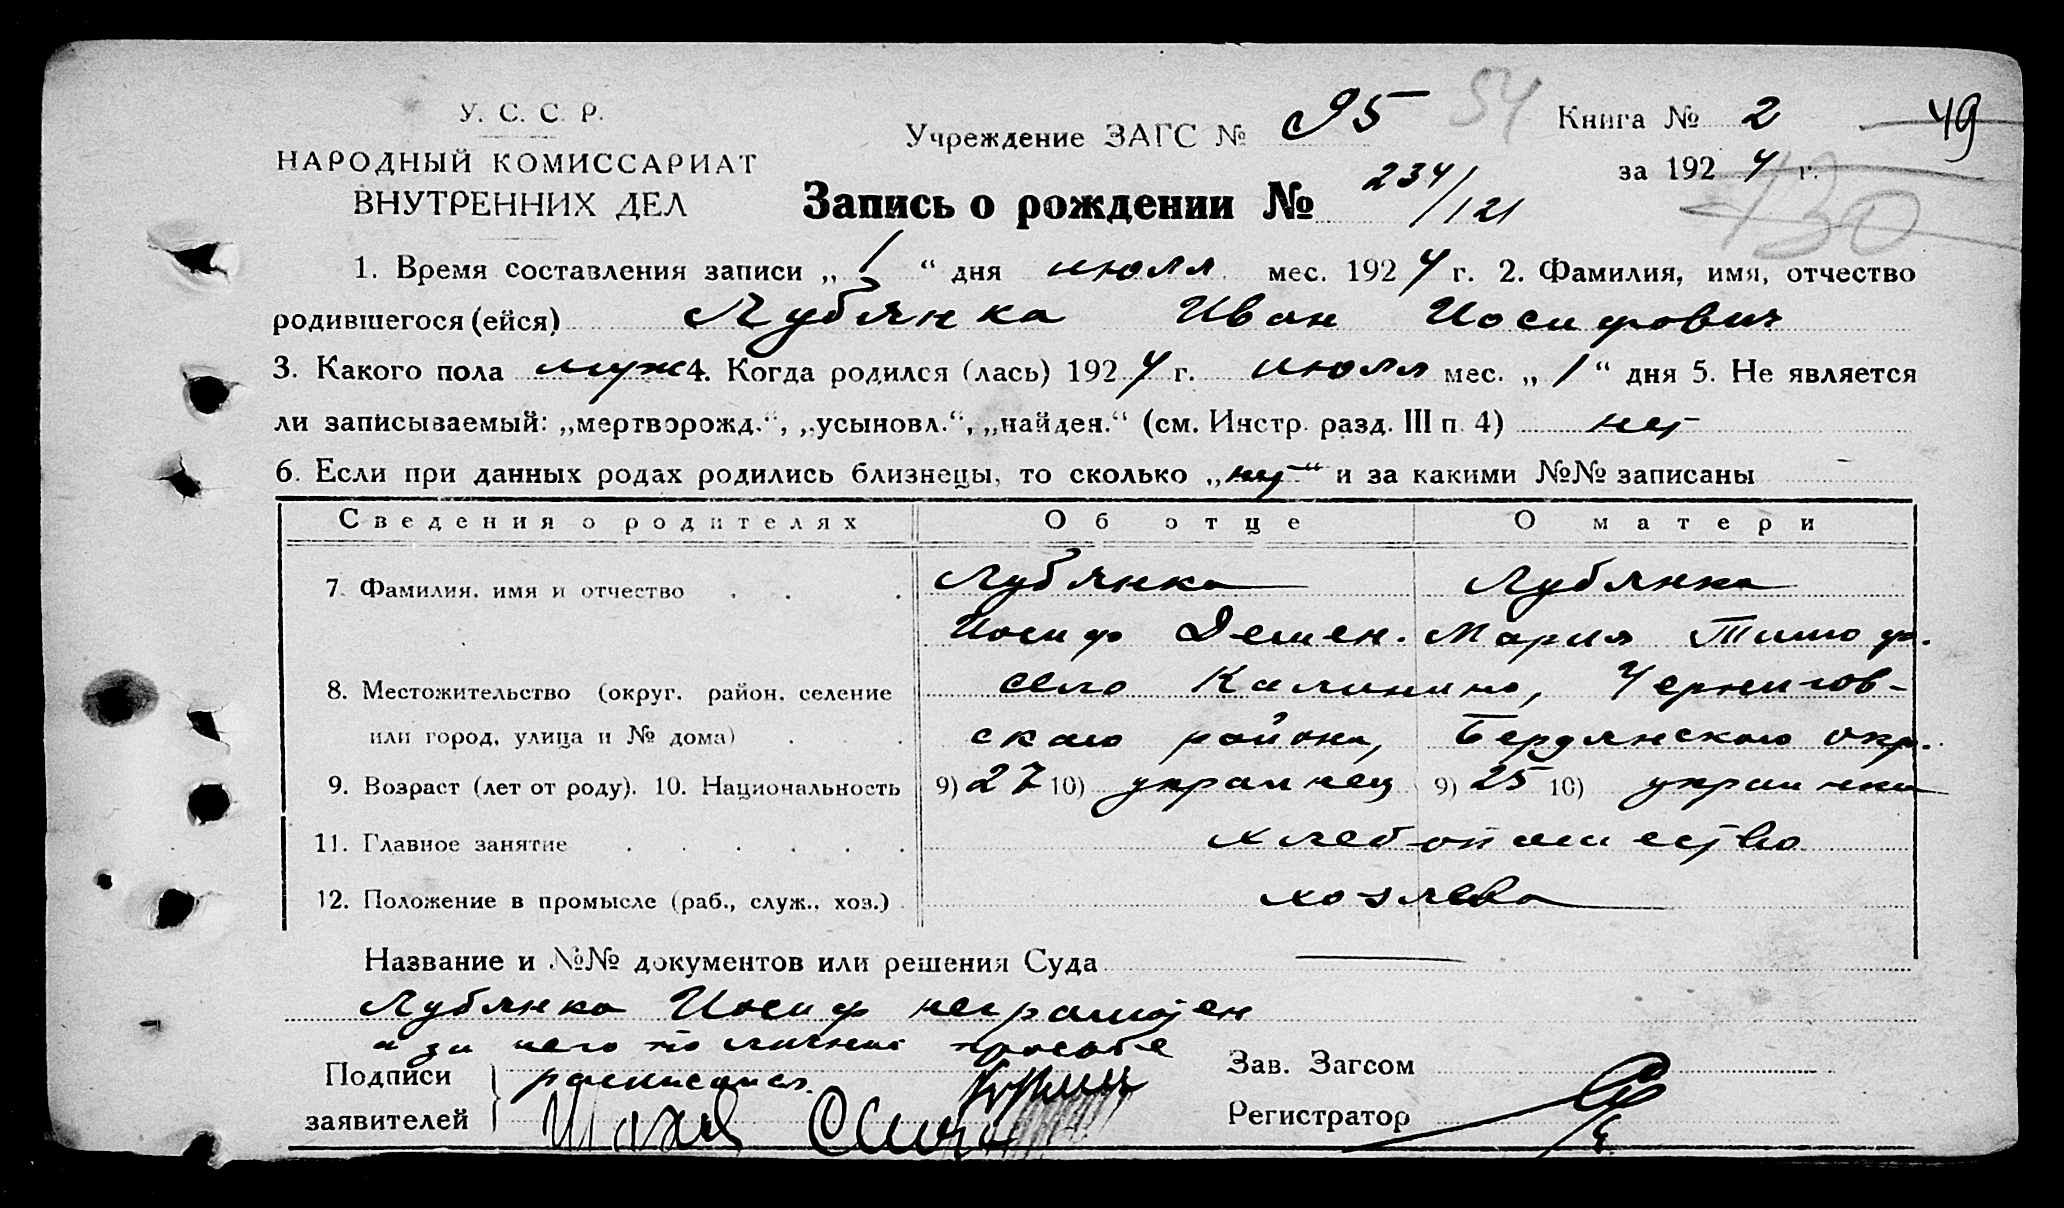 У. С. С. Р.
НАРОДНЫЙ КОМИССАРИАТ
ВНУТРЕННИХ ДЕЛ
Учреждение ЗАГС № 95 54
Книга № 2 49
за 1924 г.
430
Запись о рождении № 234/121
1. Время составления записи „ 1 “ дня июля мес. 1924 г. 2. Фамилия, имя, отчество
родившегося (ейся) Лубянка Иван Иосифович
3. Какого пола муж 4. Когда родился (лась) 1924 г. июля мес. „ 1 “ дня 5. Не является
ли записываемый: „мертворожд.“, „усыновл.“, „найден.“ (см. Инстр. разд. III п. 4) нет
6. Если при данных родах родились близнецы, то сколько „нет“ и за какими №№ записаны
Сведения о родителях Об отце О матери
7. Фамилия, имя и отчество Лубянка Лубянка
Иосиф Демен. Мария Тимоф.
8. Местожительство (округ, район, селение село Калинино, Чернигов-
или город, улица и № дома) ского района, Бердянского окр.
9. Возраст (лет от роду). 10. Национальность 9) 27 10) украинец 9) 25 10) украинка
11. Главное занятие хлебопашество
12. Положение в промысле (раб., служ., хоз.) хозяева
Название и №№ документов или решения Суда
Лубянка Иосиф неграмотен
а за него по личной просьбе
Подписи расписался
заявителей
Зав. Загсом
Регистратор